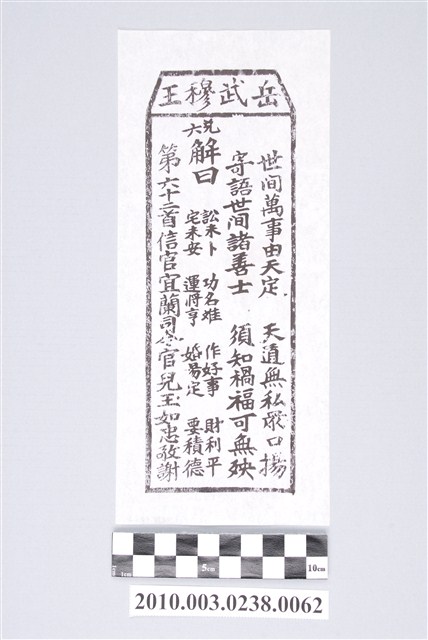 岳武穆王
世间萬事由天定 天道無私眾口揚
寄語世间諸善士 須知禍福可無殃
兌六
解曰
訟未卜 功名难 作好事 財利平
宅未安 運將亨 婚易定 要積德
第六十二首信官宜蘭司令官兒玉如忠敬謝
1cm 5cm 10cm
2010.003.0238.0062